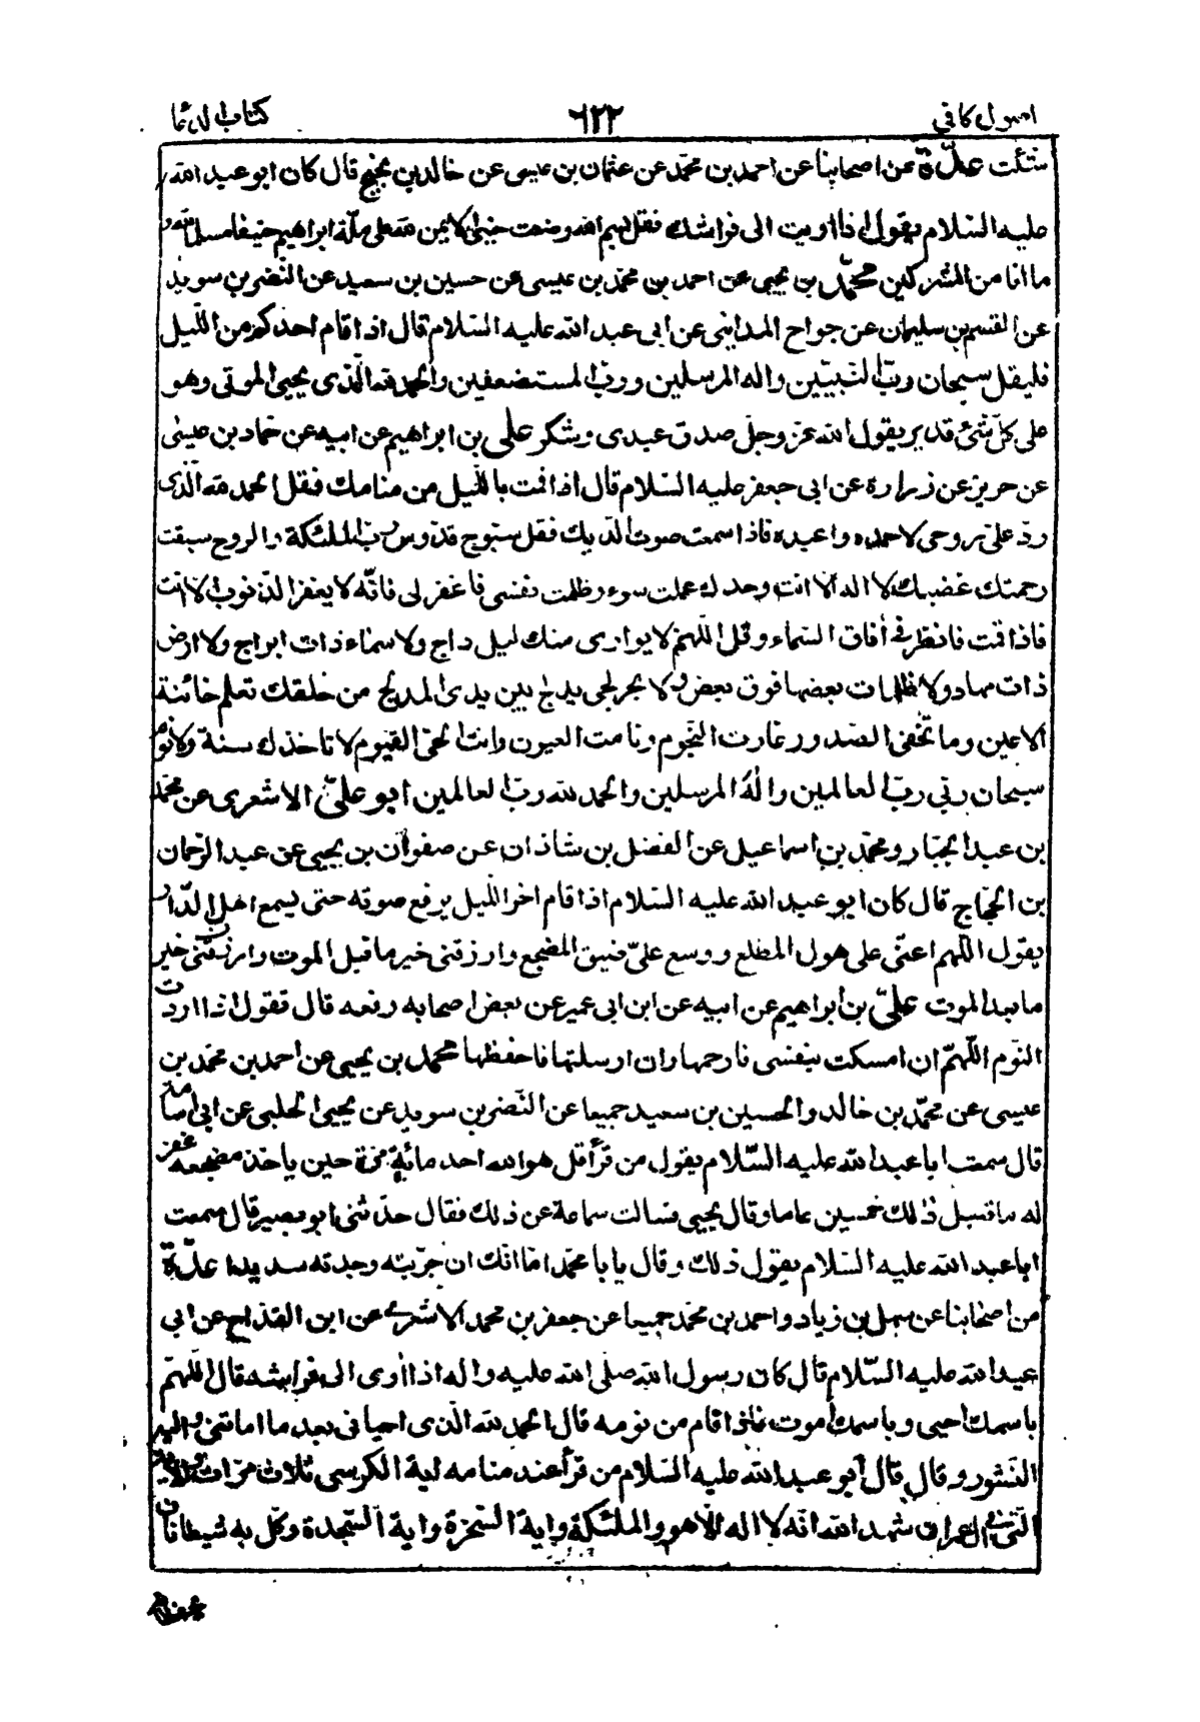 اصول كافى ٦٢٢ كتاب الدعا
شئت عدّة من اصحابنا عن احمد بن محمّد عن عثمان بن عيسى عن خالد بن نجيح قال كان ابو عبد الله
عليه السّلام يقول اذا اويت الى فراشك فقل بسم الله وضعت جنبى الايمن لله على ملّة ابراهيم حنيفا مسلما لله و
ما انا من المشركين محمّد بن يحيى عن احمد بن محمّد بن عيسى عن حسين بن سعيد عن النّضر بن سويد
عن القسم بن سليمان عن جراح المداينى عن ابى عبد الله عليه السّلام قال اذا قام احدكم من اللّيل
فليقل سبحان ربّ النّبيّين واله المرسلين وربّ المستضعفين والحمد لله الّذى يحيى الموتى وهو
على كلّ شئ قدير يقول الله عزّ وجلّ صدق عبدى وشكر علىّ بن ابراهيم عن ابيه عن حمّاد بن عيسى
عن حريز عن زرارة عن ابى جعفر عليه السّلام قال اذا قمت باللّيل من منامك فقل الحمد لله الّذى
ردّ علىّ روحى لاحمده واعبده فاذا سمعت صوت الدّيك فقل سبّوح قدّوس ربّ الملئكة والروح سبقت
رحمتك غضبك لا اله الا انت وحدك عملت سوء وظلمت نفسى فاغفر لى فانّه لا يغفر الذّنوب الا انت
فاذا قمت فانظر فى أفاق السّماء وقل اللّهمّ لا يوارى منك ليل داج ولا سماء ذات ابراج ولا ارض
ذات مهاد ولا ظلمات بعضها فوق بعض ولا بحر لجى يدلج بين يدى المدلج من خلقك تعلم خائنة
الاعين وما تخفى الصّدور غارت النّجوم ونامت العيون وانت الحىّ القيّوم لا تاخذك سنة ولا نوم
سبحان ربّى ربّ العالمين واله المرسلين والحمد لله ربّ العالمين ابو علىّ الاشعرى عن محمّد
بن عبد الجبّار ومحمّد بن اسماعيل عن الفضل بن شاذان عن صفوان بن يحيى عن عبد الرّحمان
بن الحجّاج قال كان ابو عبد الله عليه السّلام اذا قام اخر اللّيل يرفع صوته حتى يسمع اهل الدّار
يقول اللّهم اعنّى على هول المطلع ووسع علىّ ضيق المضجع وارزقنى خير ما قبل الموت وارزقنى خير
ما بعد الموت علىّ بن ابراهيم عن ابيه عن ابن ابى عمير عن بعض اصحابه رفعه قال تقول اذا اردت
النّوم اللّهمّ ان امسكت بنفسى فارحمها وان ارسلتها فاحفظها محمد بن يحيى عن احمد بن محمّد بن
عيسى عن محمّد بن خالد والحسين بن سعيد جميعا عن النّضر بن سويد عن يحيى الحلبى عن ابى اسامة
قال سمعت ابا عبد الله عليه السّلام يقول من قرأ قل هو الله احد مائة مرّة حين ياخذ مضجعه غفر
له ما قبل ذلك خمسين عاما وقال يحيى فسالت سماعة عن ذلك فقال حدّثنى ابو بصير قال سمعت
ابا عبد الله عليه السّلام يقول ذلك وقال يا با محمّد اما انّك ان جرّبته وجدته سديدا عدّة
من اصحابنا عن سهل بن زياد واحمد بن محمّد جميعا عن جعفر بن محمد الاشعرى عن ابن القدّاح عن ابى
عبد الله عليه السّلام قال كان رسول الله صلّى الله عليه واله اذا أوى الى فراشه قال اللّهمّ
باسمك احيى وباسمك أموت فاذا قام من نومه قال الحمد لله الّذى احيانى بعد ما اماتنى واليه
النّشور وقال قال أبو عبد الله عليه السّلام من قرأ عند منامه اية الكرسى ثلاث مرّات والاية
الّتى فى ال عمران شهد الله انّه لا اله الّا هو والملئكة واية السّخرة واية السّجدة وكّل به شيطانان